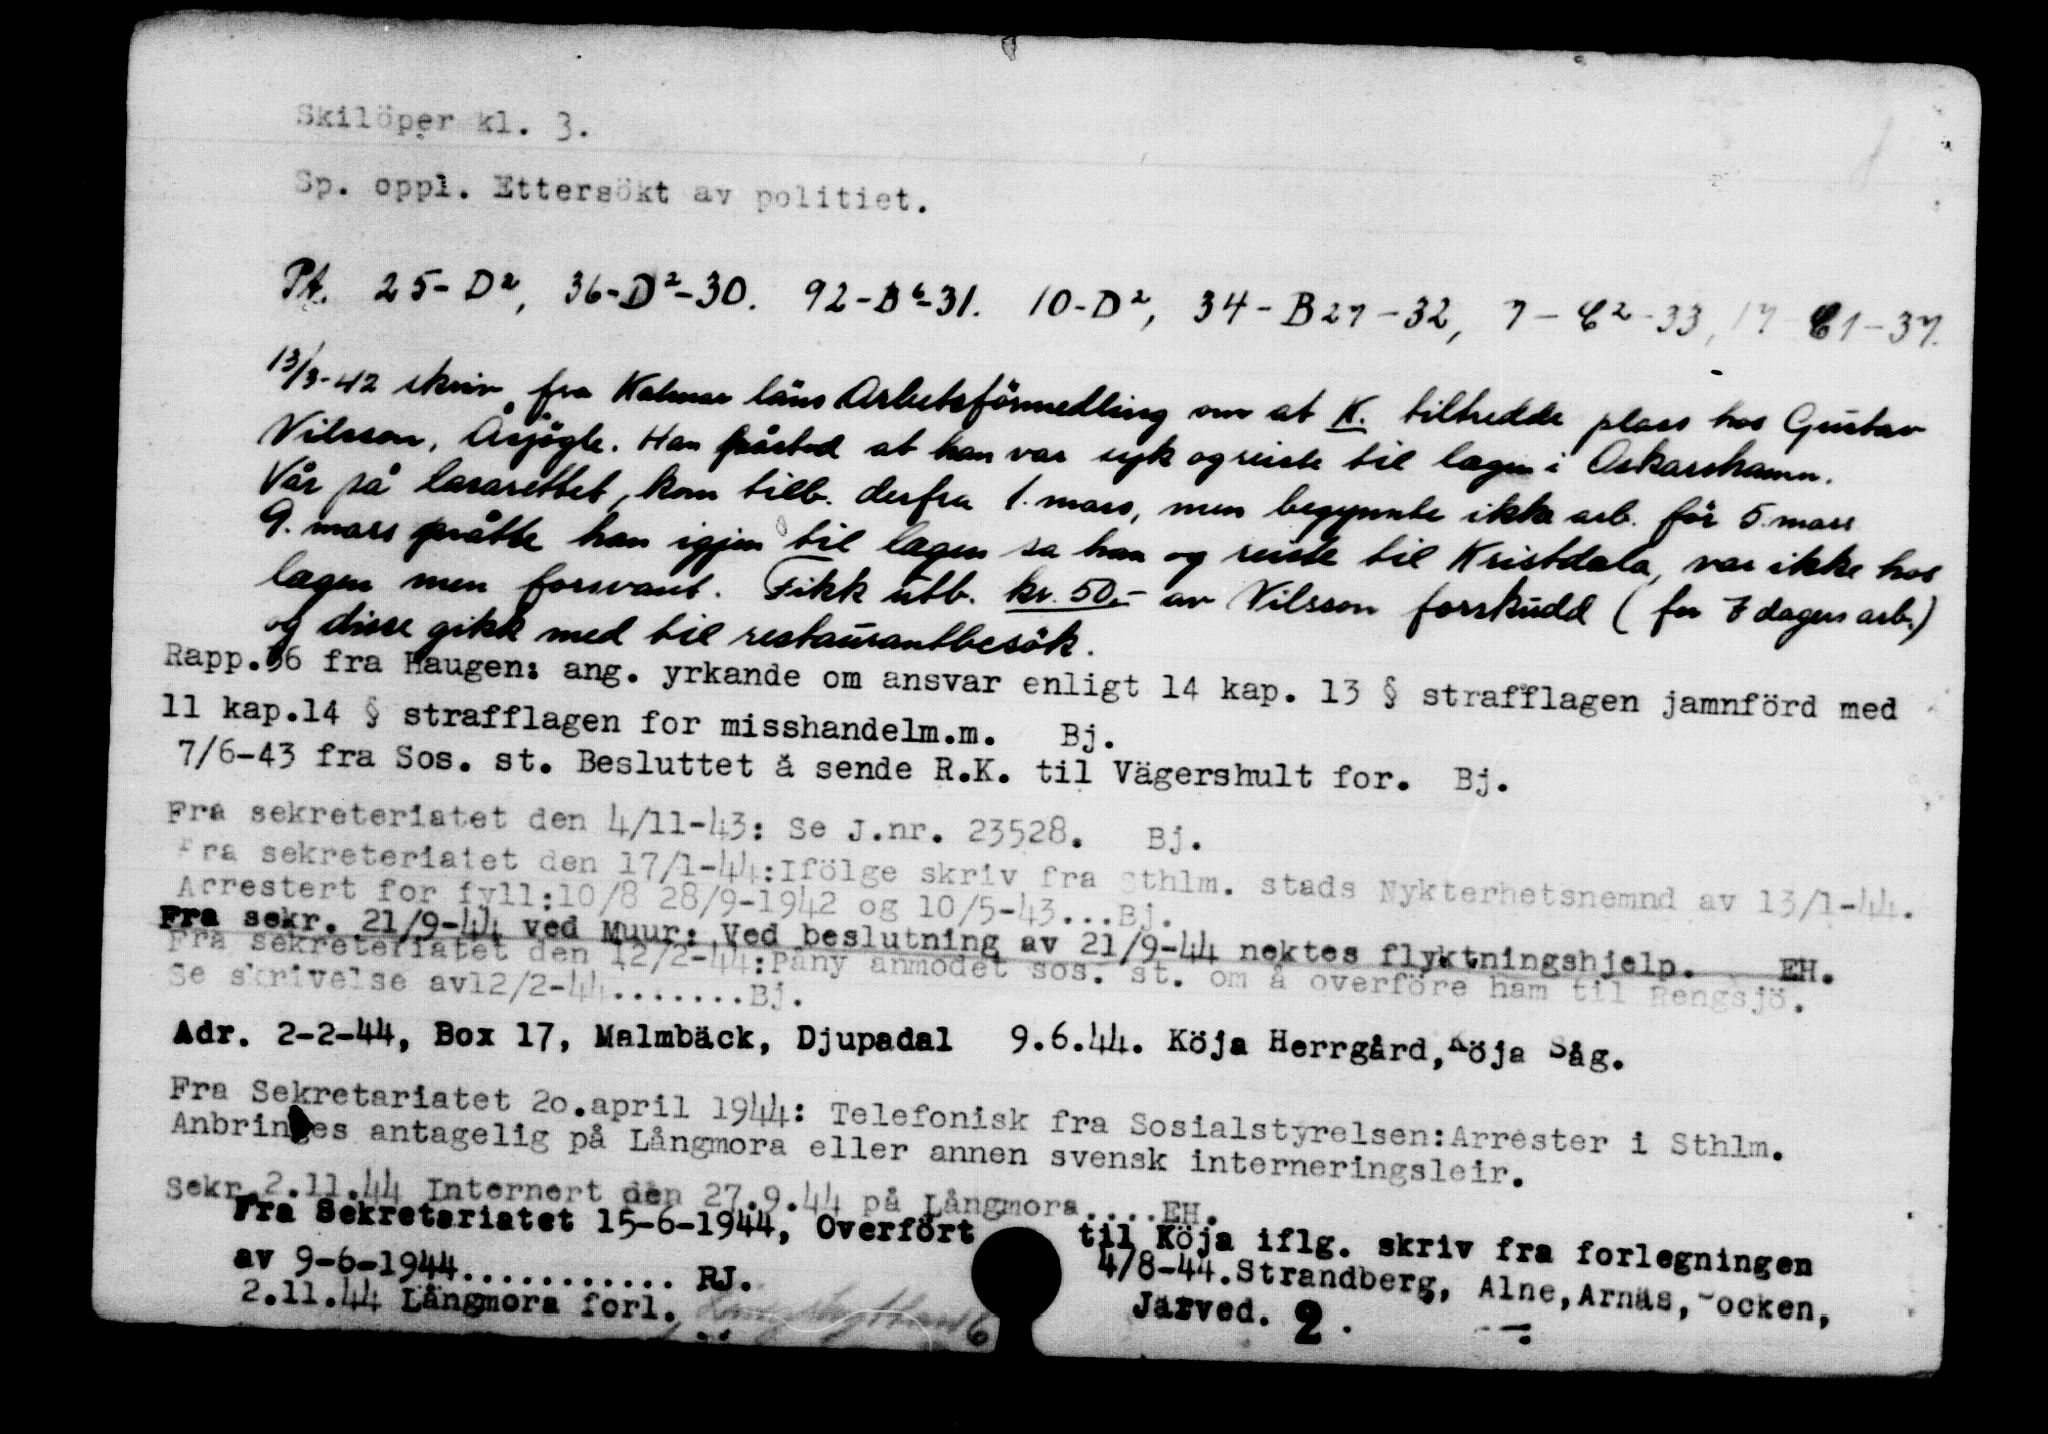 Skilöper kl. 3.
Sp. oppl. Ettersökt av politiet.
Pt. 25-D², 36-D²-30. 92-B⁶-31. 10-D², 34-B27-32, 7-C²-33, 17-C1-37.
13/3-42 skriv fra Kalmar läns Arbetsförmedling om at K. tiltredde plass hos Gustav
Nilsson, Åsjögle. Han påstod at han var syk og reiste til lægen i Oskarshamn.
Vår på lasarettet, kom tilb. derfra 1. mars, men begynnte ikke arb. för 5. mars
9. mars måtte han igjen til lægen sa han og reiste til Kristdala, var ikke hos
lægen men forsvant. Fikk utb. kr. 50,- av Nilsson forskudd (for 7 dagers arb.)
og disse gikk med til restaurantbesök.
Rapp.36 fra Haugen: ang. yrkande om ansvar enligt 14 kap. 13 § strafflagen jamnförd med
11 kap.14 § strafflagen for misshandelm.m. Bj.
7/6-43 fra Sos. st. Besluttet å sende R.K. til Vägershult for. Bj.
Fra sekreteriatet den 4/11-43: Se J.nr. 23528. Bj.
Fra sekreteriatet den 17/1-44:Ifölge skriv fra Sthlm. stads Nykterhetsnemnd av 13/1-44.
Arrestert for fyll:10/8 28/9-1942 og 10/5-43...Bj.
Fra sekr. 21/9-44 ved Muur: Ved beslutning av 21/9-44 nektes flyktningshjelp. EH.
Fra sekreteriatet den 12/2-44:Påny anmodet sos. st. om å overföre ham til Rengsjö.
Se skrivelse av12/2-44.......Bj.
Adr. 2-2-44, Box 17, Malmbäck, Djupadal 9.6.44. Köja Herrgård, Köja Såg.
Fra Sekretariatet 20.april 1944: Telefonisk fra Sosialstyrelsen:Arrester i Sthlm.
Anbringes antagelig på Långmora eller annen svensk interneringsleir.
Sekr. 2.11.44 Internert den 27.9.44 på Långmora....EH.
Fra Sekretariatet 15-6-1944, Overfört til Köja iflg. skriv fra forlegningen
av 9-6-1944............ RJ. 4/8-44.Strandberg, Alne,Arnäs, ocken,
2.11.44 Långmora forl. 6 Järved. 2.